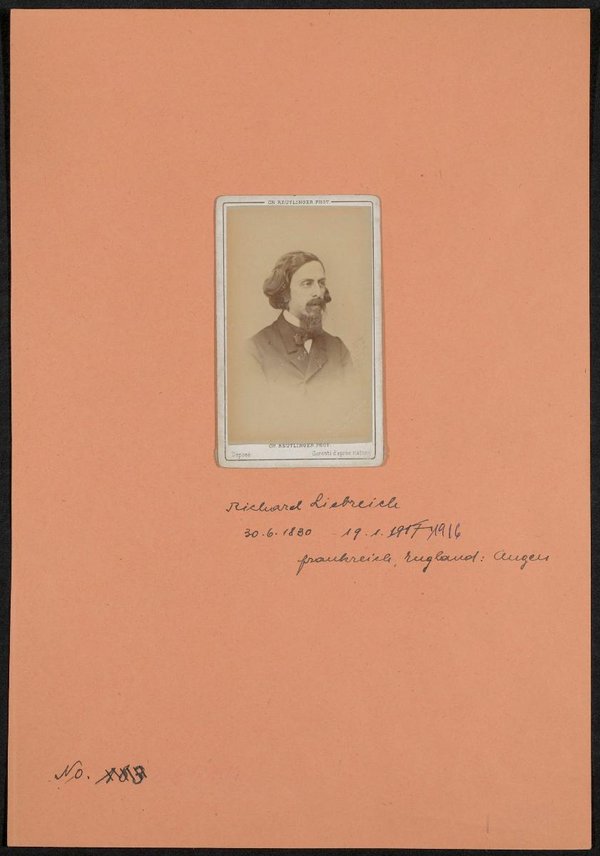 CH. REUTLINGER PHOT.
CH. REUTLINGER PHOT.
Déposé Garanti d'après nature
Richard Liebreich
30.6.1830 19.1.1917 1916
Frankreich, England: Augen
No. 183